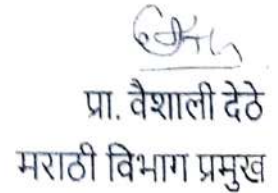 प्रा. वैशाली देठे
मराठी विभाग प्रमुख